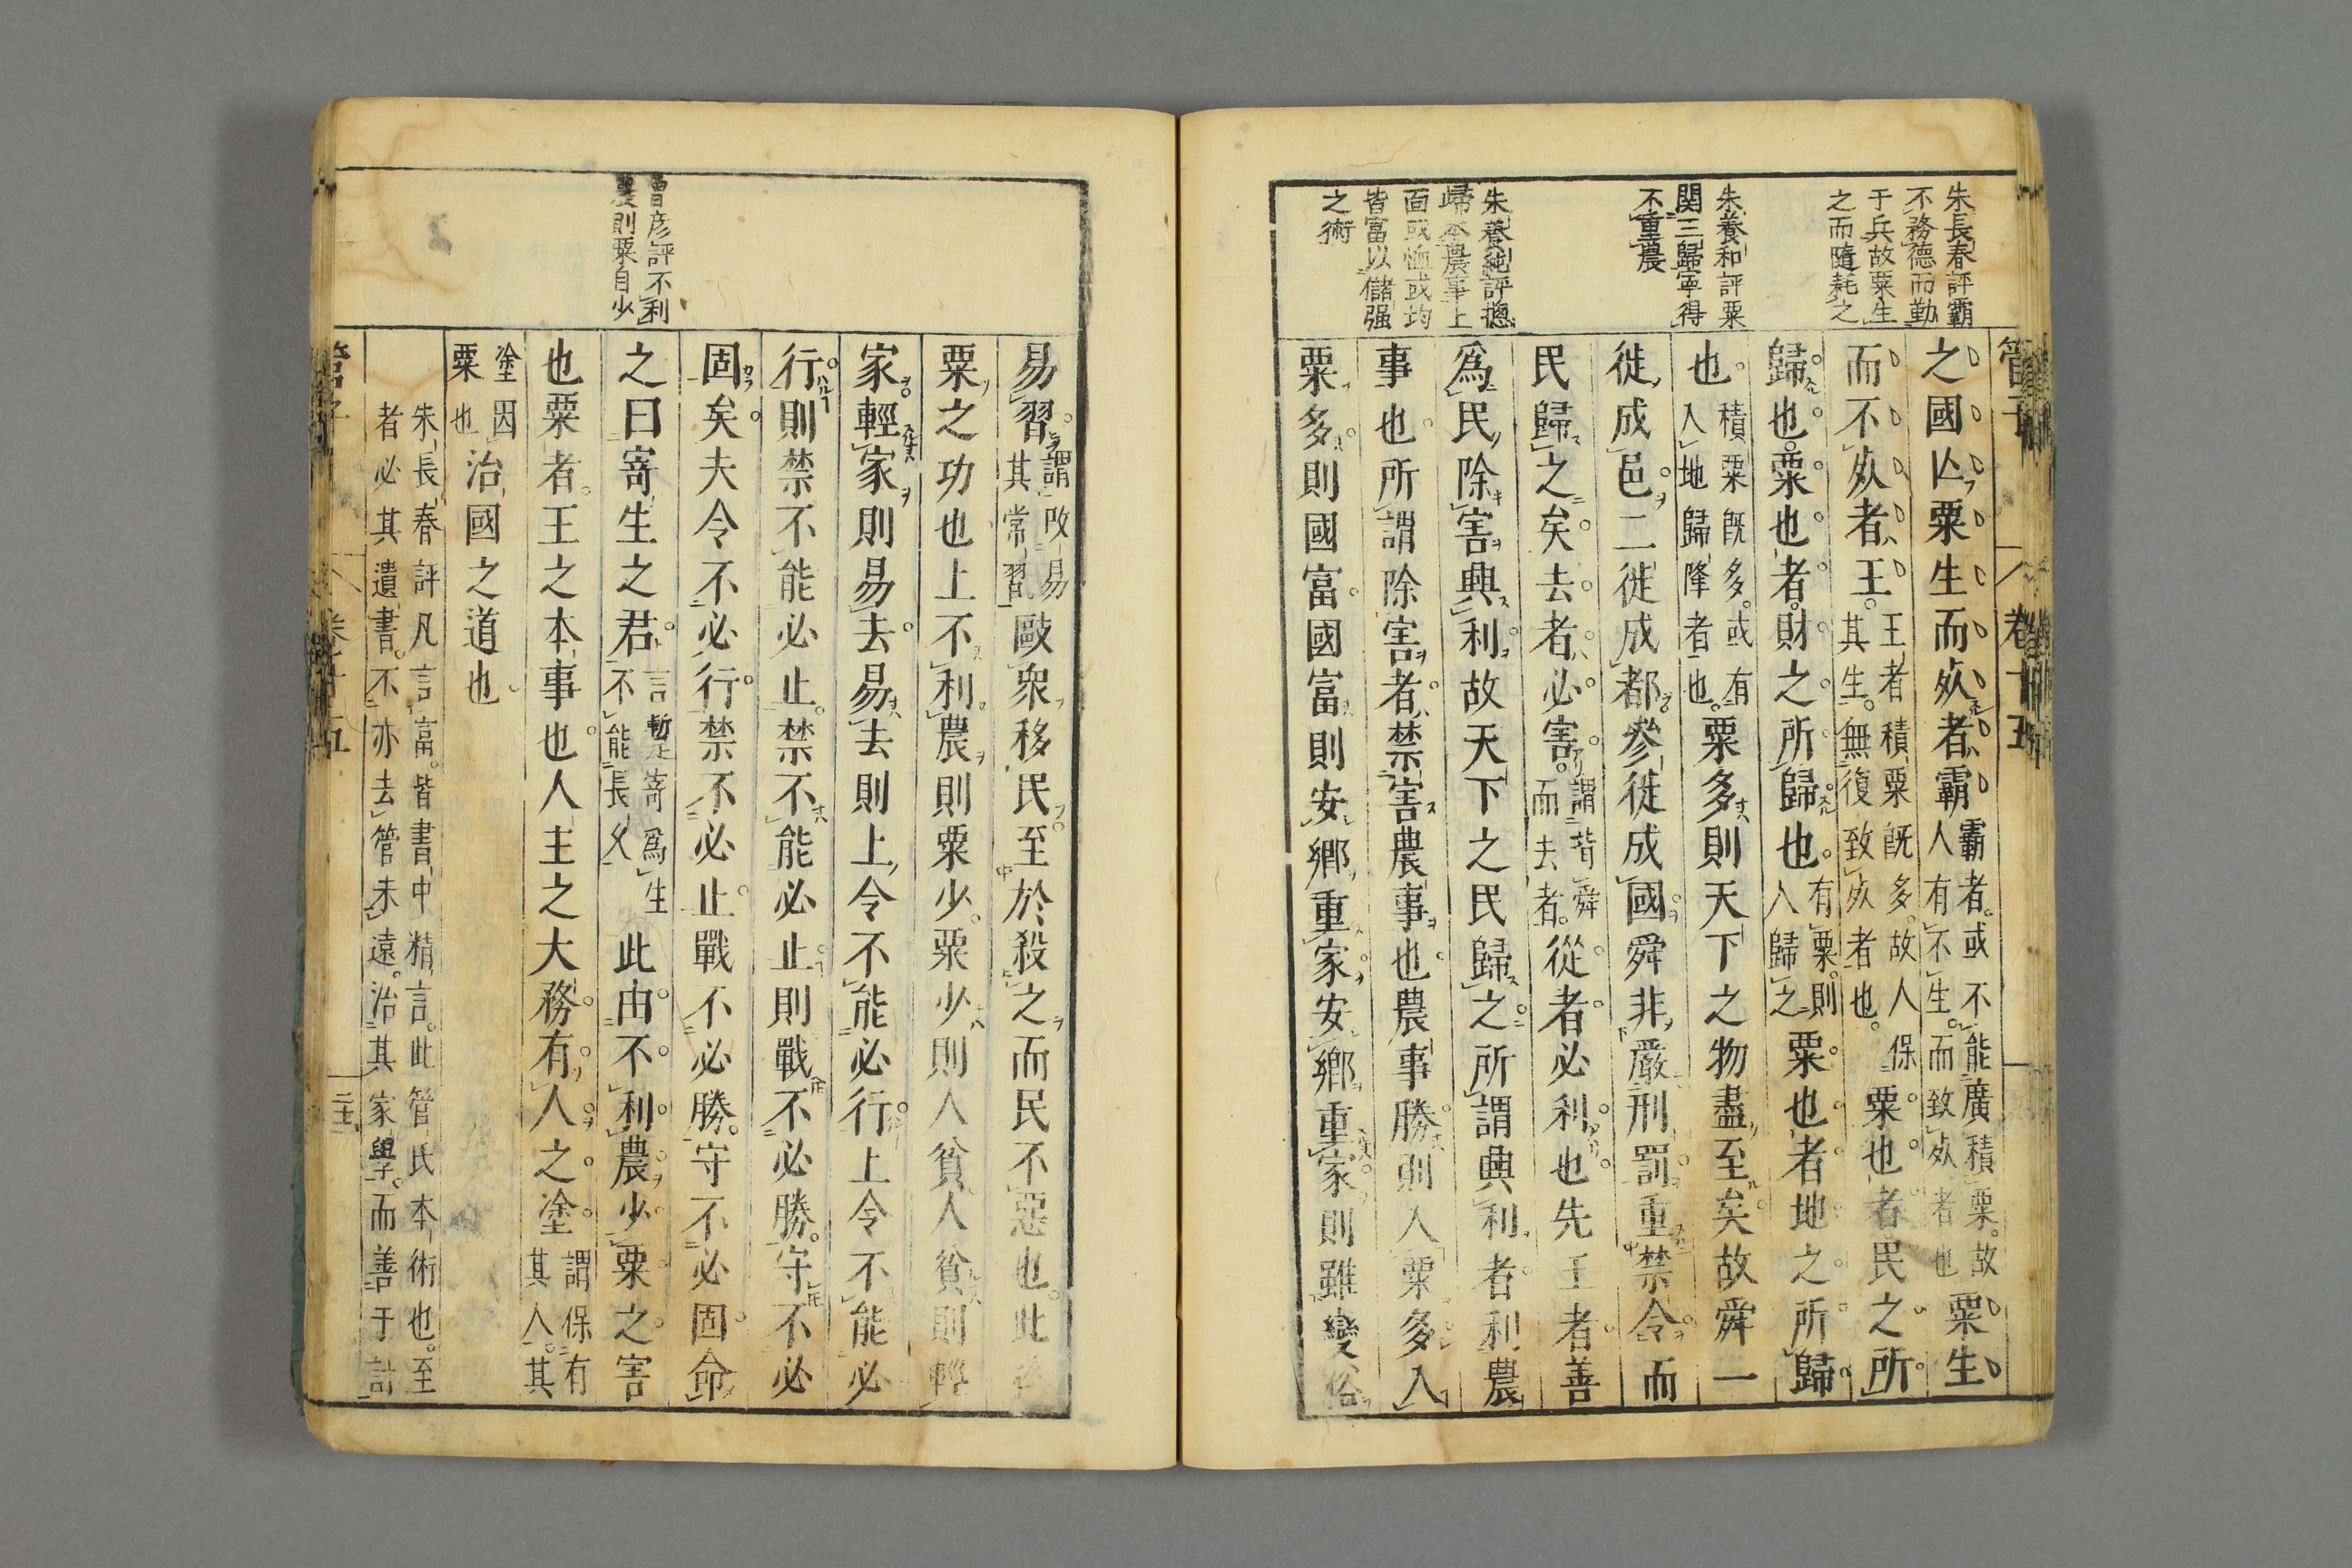 朱長春評霸
不務德而勤
于兵故粟生
之而隨耗之
朱養和評粟
関三歸寧得
不重農
朱養純評揔
歸本農事上
面或恤或均
皆富以儲强
之術
管子 卷十五
之國亾粟生而𣦸者霸霸者或不能廣積粟故人有不生而致𣦸者也粟生
而不𣦸者王王者積粟既多故人保其生無復致𣦸者也粟也者民之所
歸也粟也者財之所歸也有粟則人歸之粟也者地之所歸
也積粟既多或有人地歸降者也粟多則天下之物盡至矣故舜一
徙成邑二徙成都參徙成國舜非嚴刑罰重禁令而
民歸之矣去者必害謂背舜而去者從者必利也先王者善
爲民除害興利故天下之民歸之所謂興利者利農
事也所謂除害者禁害農事也農事勝則入粟多入
粟多則國富國富則安鄉重家安鄉重家則雖變俗
曾彦評不利
農則粟自少
易習謂改易其常習敺衆移民至於殺之而民不惡也此務
粟之功也上不利農則粟少粟少則人貧人貧則輕
家輕家則易去易去則上令不能必行上令不能必
行則禁不能必止禁不能必止則戰不必勝守不必
固矣夫令不必行禁不必止戰不必勝守不必固命
之曰寄生之君言暫寄爲生不能長久此由不利農少粟之害
也粟者王之本事也人主之大務有人之塗謂保有其人其
塗因粟也治國之道也
朱長春評凡言富皆書中精言此管氏本術也至
者必其遺書不亦去管未遠治其家學而善于計
管子 卷十五